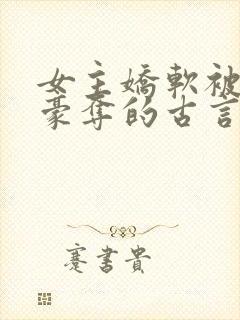 女主嬌軟被
豪奪的古言
蹇書貴